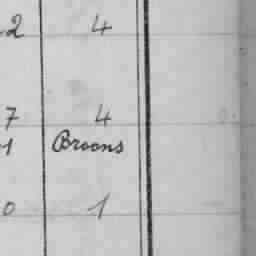 2 4
7 4
1 Broons
0 1